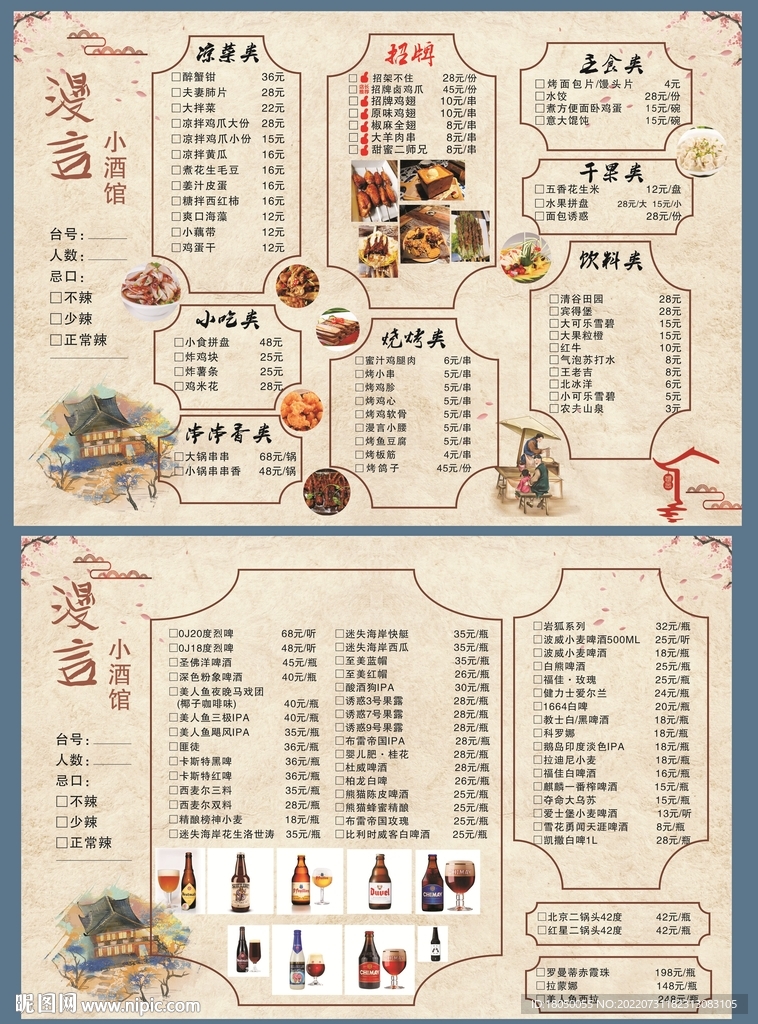 漫言
小酒馆
台号：
人数：
忌口：
□不辣
□少辣
□正常辣
凉菜类
□醉蟹钳 36元
□夫妻肺片 28元
□大拌菜 22元
□凉拌鸡爪大份 28元
□凉拌鸡爪小份 15元
□凉拌黄瓜 16元
□煮花生毛豆 16元
□姜汁皮蛋 16元
□糖拌西红柿 16元
□爽口海藻 12元
□小藕带 12元
□鸡蛋干 12元
小吃类
□小食拼盘 48元
□炸鸡块 25元
□炸薯条 25元
□鸡米花 28元
串串香类
□大锅串串 68元/锅
□小锅串串香 48元/锅
招牌
□招架不住 28元/份
□招牌卤鸡爪 45元/份
□招牌鸡翅 10元/串
□原味鸡翅 10元/串
□椒麻全翅 8元/串
□大羊肉串 8元/串
□甜蜜二师兄 8元/串
烧烤类
□蜜汁鸡腿肉 6元/串
□烤小串 5元/串
□烤鸡胗 5元/串
□烤鸡心 5元/串
□烤鸡软骨 5元/串
□漫言小腰 5元/串
□烤鱼豆腐 5元/串
□烤板筋 4元/串
□烤鸽子 45元/份
主食类
□烤面包片/馒头片 4元
□水饺 28元/份
□煮方便面卧鸡蛋 15元/碗
□意大馄饨 15元/碗
干果类
□五香花生米 12元/盘
□水果拼盘 28元/大 15元/小
□面包诱惑 28元/份
饮料类
□清谷田园 28元
□宾得堡 28元
□大可乐雪碧 15元
□大果粒橙 15元
□红牛 10元
□气泡苏打水 8元
□王老吉 8元
□北冰洋 6元
□小可乐雪碧 5元
□农夫山泉 3元
漫言
小酒馆
台号：
人数：
忌口：
□不辣
□少辣
□正常辣
□0J20度烈啤 68元/听
□0J18度烈啤 48元/听
□圣佛洋啤酒 45元/瓶
□深色粉象啤酒 40元/瓶
□美人鱼夜晚马戏团
(椰子咖啡味) 40元/瓶
□美人鱼三极IPA 40元/瓶
□美人鱼飓风IPA 35元/瓶
□匪徒 36元/瓶
□卡斯特黑啤 36元/瓶
□卡斯特红啤 36元/瓶
□西麦尔三料 35元/瓶
□西麦尔双料 28元/瓶
□精酿榜神小麦 18元/瓶
□迷失海岸花生洛世涛 35元/瓶
□迷失海岸快艇 35元/瓶
□迷失海岸西瓜 35元/瓶
□至美蓝帽 35元/瓶
□至美红帽 26元/瓶
□酸酒狗IPA 30元/瓶
□诱惑3号果露 28元/瓶
□诱惑7号果露 28元/瓶
□诱惑9号果露 28元/瓶
□布雷帝国IPA 28元/瓶
□婴儿肥·桂花 28元/瓶
□杜威啤酒 28元/瓶
□柏龙白啤 26元/瓶
□熊猫陈皮啤酒 25元/瓶
□熊猫蜂蜜精酿 25元/瓶
□布雷帝国玫瑰 25元/瓶
□比利时威客白啤酒 25元/瓶
□岩狐系列 32元/瓶
□波威小麦啤酒500ML 25元/听
□波威小麦啤酒 18元/瓶
□白熊啤酒 25元/瓶
□福佳·玫瑰 25元/瓶
□健力士爱尔兰 24元/瓶
□1664白啤 20元/瓶
□教士白/黑啤酒 18元/瓶
□科罗娜 18元/瓶
□鹅岛印度淡色IPA 18元/瓶
□拉迪尼小麦 18元/瓶
□福佳白啤酒 16元/瓶
□麒麟一番榨啤酒 15元/瓶
□夺命大乌苏 15元/瓶
□爱士堡小麦啤酒 13元/听
□雪花勇闯天涯啤酒 8元/瓶
□凯撒白啤1L 28元/瓶
Duvel
CHIMAY
CHIMAY
□北京二锅头42度 42元/瓶
□红星二锅头42度 42元/瓶
□罗曼蒂赤霞珠 198元/瓶
□拉蒙娜 148元/瓶
□美人鱼西拉 248元/瓶
昵图网 www.nipic.com
ID:18050055 NO:20220731182313083105